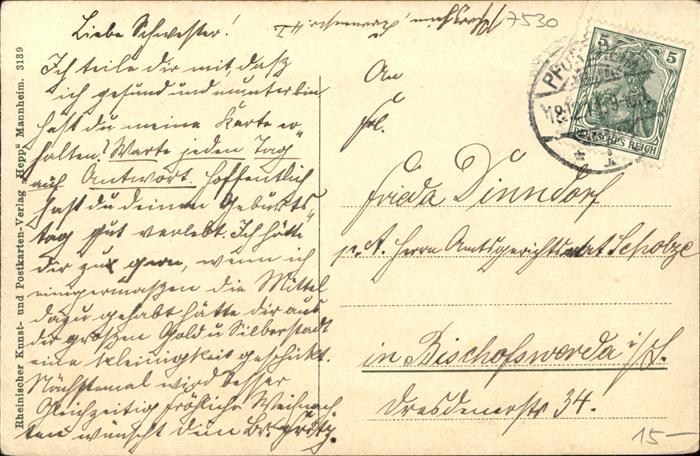 Liebe Schwester!
Ich teile dir mit, daß
ich gesund und munter bin
hast du meine Karte er-
halten? Warte jeden Tag
auf Antwort. Hoffentlich
hast du deinen Geburts-
tag gut verlebt. Ich hätte
dir zu gern, wenn ich
einigermaßen die Mittel
dazu gehabt hätte dir aus
der großen Gold u Silberstadt
eine kleinigkeit geschickt.
Nächstemal wird besser
Gleichzeitig fröhliche Weihnach-
ten wünscht dein Br. Fritz.
7530
An
Frl.
Frieda Dinndorf
p. A. Herrn Amtsgerichtsrat Scholze
in Bischofswerda i/S.
Dresdenerstr 34.
15—
5 5
DEUTSCHES REICH
Rheinischer Kunst- und Postkarten-Verlag „Hepp“ Mannheim. 3139